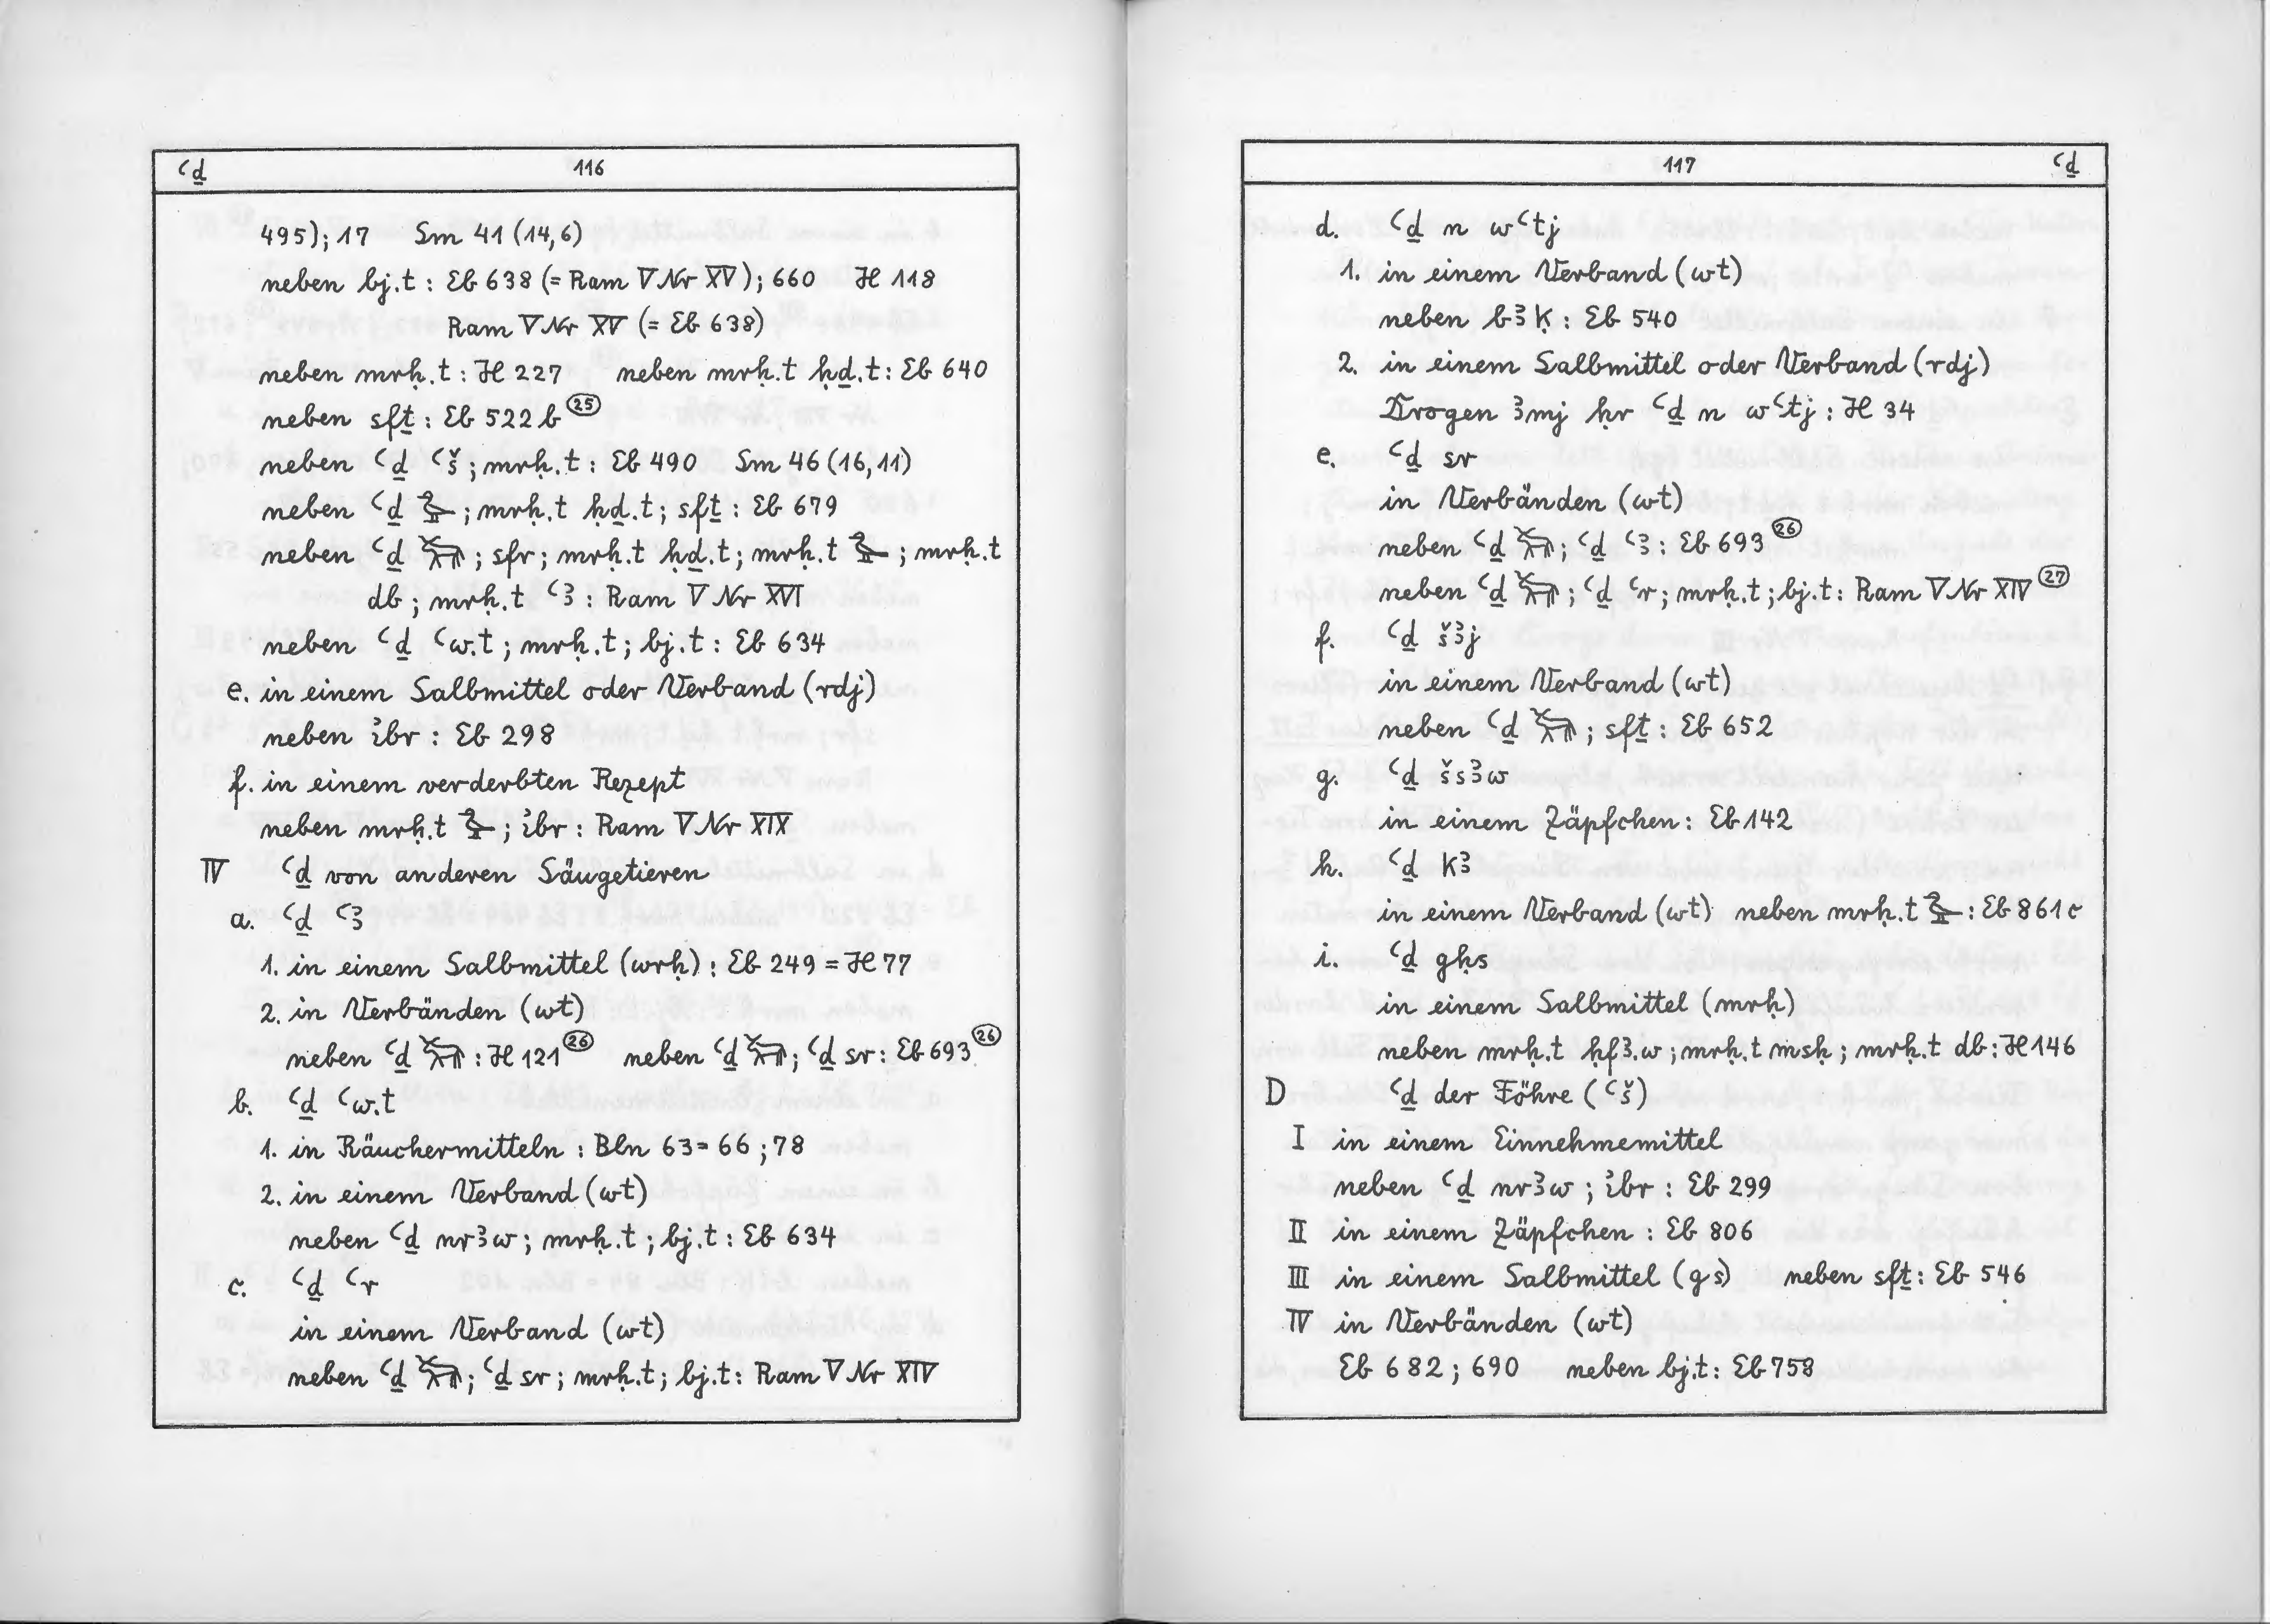 ꜥḏ 116
495); 17 Sm 41 (14,6)
neben bj.t : Eb 638 (= Ram V Nr XV); 660 H 118
Ram V Nr XV (= Eb 638)
neben mrḥ.t : H 227 neben mrḥ.t ḥḏ.t : Eb 640
neben sfṯ : Eb 522 b ㉕
neben ꜥḏ ꜥš ; mrḥ.t : Eb 490 Sm 46 (16,11)
neben ꜥḏ ; mrḥ.t ḥḏ.t ; sfṯ : Eb 679
neben ꜥḏ ; sfr ; mrḥ.t ḥḏ.t ; mrḥ.t ; mrḥ.t
db ; mrḥ.t ꜥꜣ : Ram V Nr XVI
neben ꜥḏ ꜥw.t ; mrḥ.t ; bj.t : Eb 634
e. in einem Salbmittel oder Verband (rdj)
neben ỉbr : Eb 298
f. in einem verderbten Rezept
neben mrḥ.t ; ỉbr : Ram V Nr XIX
IV ꜥḏ von anderen Säugetieren
a. ꜥḏ ꜥꜣ
1. in einem Salbmittel (wrḥ) : Eb 249 = H 77
2. in Verbänden (wt)
neben ꜥḏ : H 121 ㉖ neben ꜥḏ ; ꜥḏ sr : Eb 693 ㉖
b. ꜥḏ ꜥw.t
1. in Räuchermitteln : Bln 63 = 66 ; 78
2. in einem Verband (wt)
neben ꜥḏ nrꜣw ; mrḥ.t ; bj.t : Eb 634
c. ꜥḏ ꜥr
in einem Verband (wt)
neben ꜥḏ ; ꜥḏ sr ; mrḥ.t ; bj.t : Ram V Nr XIV
117 ꜥḏ
d. ꜥḏ n wꜥtj
1. in einem Verband (wt)
neben bꜣḳ : Eb 540
2. in einem Salbmittel oder Verband (rdj)
Drogen ꜣmj ḥr ꜥḏ n wꜥtj : H 34
e. ꜥḏ sr
in Verbänden (wt)
neben ꜥḏ ; ꜥḏ ꜥꜣ : Eb 693 ㉖
neben ꜥḏ ; ꜥḏ ꜥr ; mrḥ.t ; bj.t : Ram V Nr XIV ㉗
f. ꜥḏ šꜣj
in einem Verband (wt)
neben ꜥḏ ; sfṯ : Eb 652
g. ꜥḏ šsꜣw
in einem Zäpfchen : Eb 142
h. ꜥḏ kꜣ
in einem Verband (wt) neben mrḥ.t : Eb 861 c
i. ꜥḏ gḥs
in einem Salbmittel (mrḥ)
neben mrḥ.t ḥfꜣ.w ; mrḥ.t msḥ ; mrḥ.t db : H 146
D ꜥḏ der Föhre (ꜥš)
I in einem Einnehmemittel
neben ꜥḏ nrꜣw ; ỉbr : Eb 299
II in einem Zäpfchen : Eb 806
III in einem Salbmittel (gs) neben sfṯ : Eb 546
IV in Verbänden (wt)
Eb 682 ; 690 neben bj.t : Eb 758